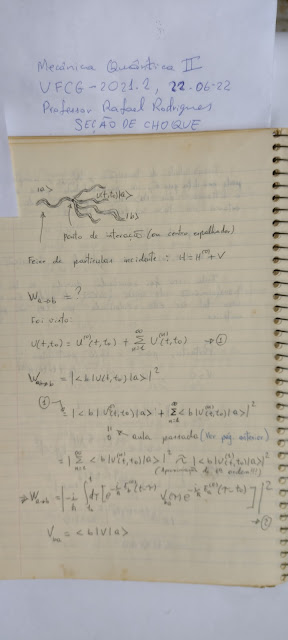 Mecânica Quântica II
UFCG - 2021.2, 22-06-22
Professor Rafael Rodrigues
SEÇÃO DE CHOQUE
|a>
U(t,t₀)|a>
|b>
Ponto de interação (ou centro espalhador)
Feixe de partículas incidente ∴ H = H⁽⁰⁾ + V
W_{a→b} = ?
Foi visto:
U(t,t₀) = U⁽⁰⁾(t,t₀) + Σ_{n=1}^{∞} U⁽ⁿ⁾(t,t₀) → ①
W_{a→b} = |<b|U(t,t₀)|a>|²
① = |<b|U⁽⁰⁾(t,t₀)|a> + Σ_{n=1}^{∞} <b|U⁽ⁿ⁾(t,t₀)|a>|²
0 aula passada (ver pág. anterior)
= |Σ_{n=1}^{∞} <b|U⁽ⁿ⁾(t,t₀)|a>|² ≈ |<b|U⁽¹⁾(t,t₀)|a>|²
(Aproximação de 1ª ordem!!!)
⇒ W_{a→b} = |-i/ħ ∫_{t₀}^{t} dτ [e^{-i/ħ E_b⁽⁰⁾(t-τ)} V_{ba}(τ) e^{-i/ħ E_a⁽⁰⁾(τ-t₀)}]|²
→ ②
V_{ba} = <b|V|a>